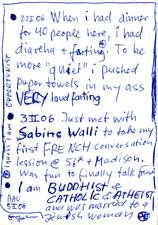 2II06 When i had dinner
for 40 people here, i had
diarehea + farting. To be
more "quiet" i pushed
paper towels in my ass
VERY loud farting
3II06 Just met with
Sabine Walli to take my
first FRENCH conversation
lession @ 56th + Madison.
Was fun to finally talk french
I am BUDDHIST &
CATHOLIC & ATHEIST
and was married to a
Jewish woman
OPPORTUNIST
I GUESS I AM
BAU
5II06